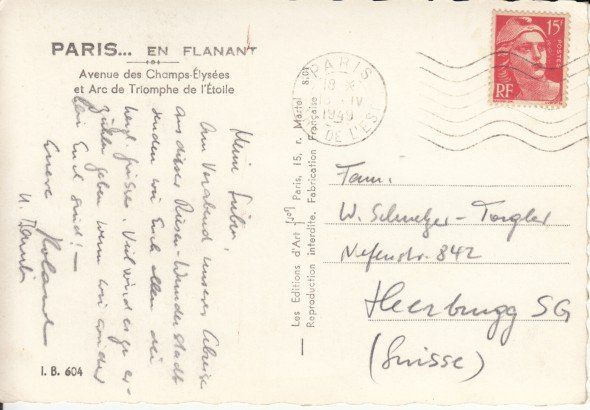 PARIS... EN FLANANT
Avenue des Champs-Élysées
et Arc de Triomphe de l'Étoile
Meine Lieben,
Am Vorabend unserer Abreise
aus dieser Riesen-Wunderstadt
senden wir Euch allen die
herzl. Grüsse. Viel wird es zu er-
zählen geben wenn wir wieder
bei Euch sind! –
Eure Roland
u.
I. B. 604
Les Editions d'Art Yvon, Paris, 15, r. Martel
Reproduction interdite. Fabrication Française
8.01
PARIS
18 H
IV
1949
DE L'EST
15F
POSTES
RF
Fam.
W. Schmelzer - Torgler
Nefenstr. 842
Heerbrugg SG
(Suisse)